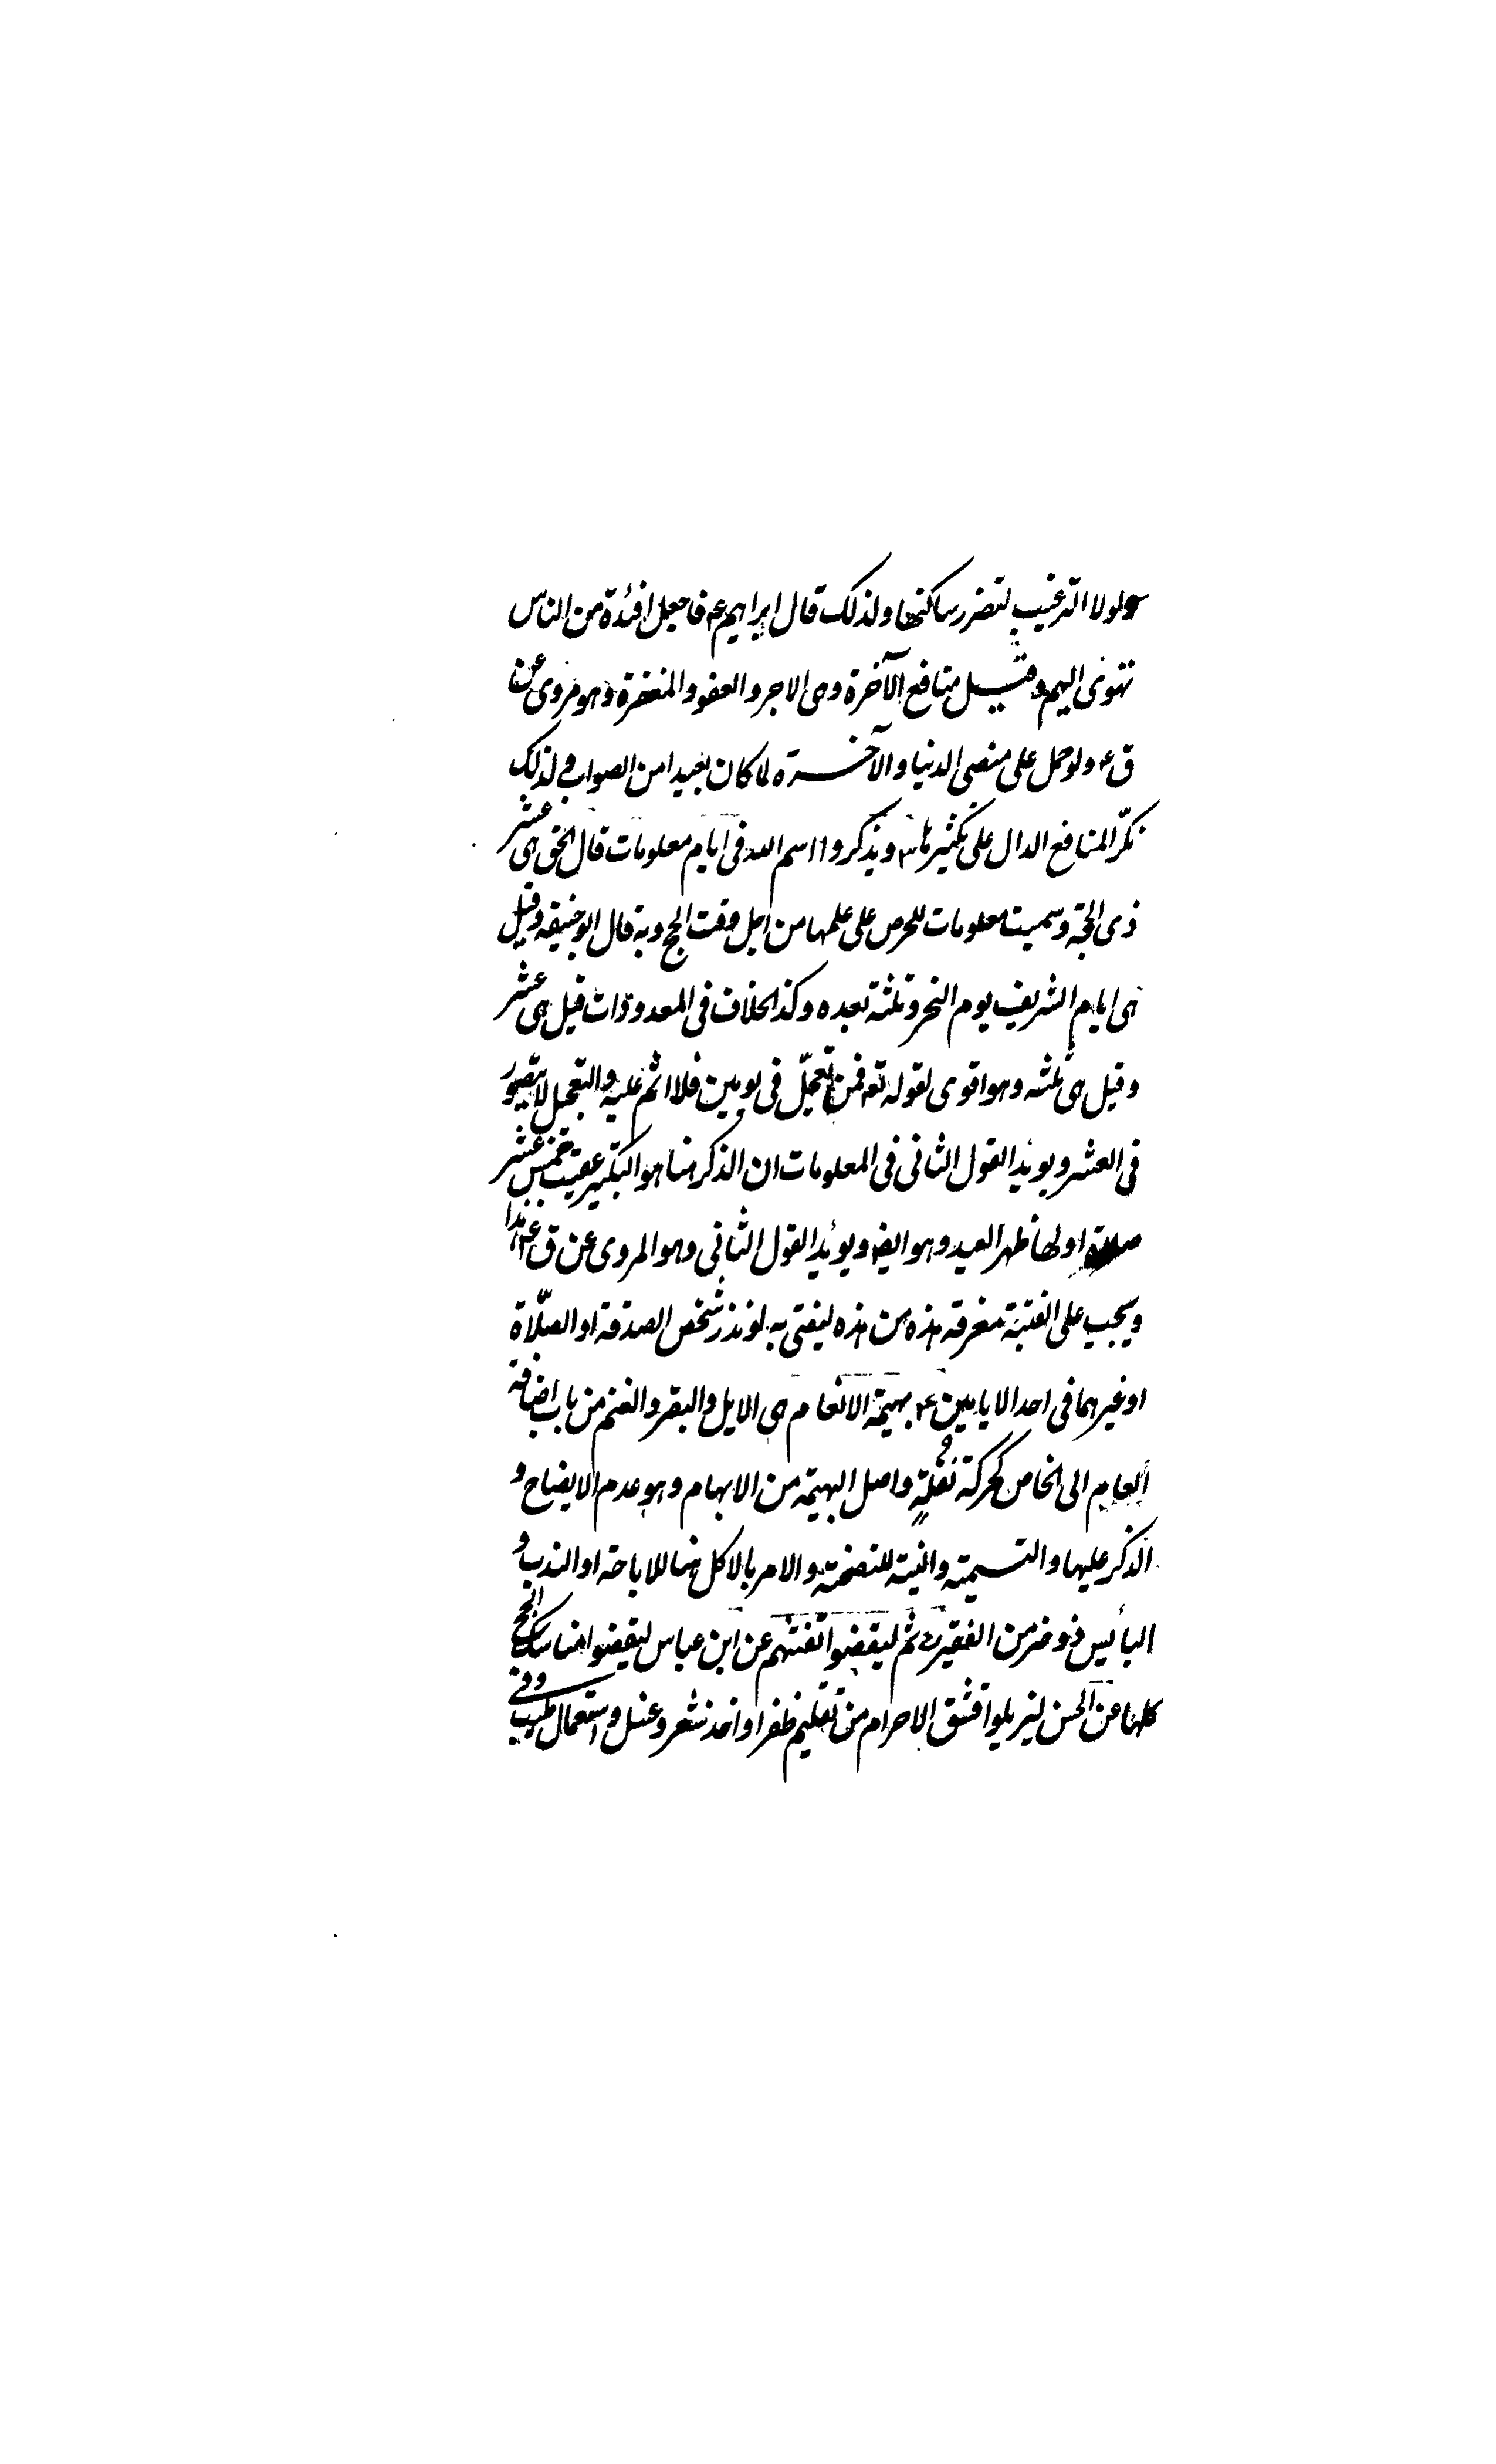 ولولا الترغيب لتضرر ساكنها ولذلك قال ابراهيم ع فاجعل افئدة من الناس
تهوى اليهم وقيل منافع الآخرة وهى الاجر والعفو والمغفرة وهو مروى عن
ق ع ولو حمل على منفعى الدنيا والآخرة لما كان بعيدا من الصواب ولذلك
نكّر المنافع الدال على تكثيرها ٣ ويذكروا اسم الله فى ايام معلومات قال هى عشر
ذى الحجة وسميت معلومات للحرص على علمها من اجل وقت الحج وبه قال ابو حنيفه وقيل
هى ايام التشريق يوم النحر وثلثه بعده وكذا الخلاف فى المعدودات قيل هى عشر
وقيل هى ثلثه وهو اقوى لقوله تع فمن تعجّل فى يومين فلا اثم عليه والتعجيل لا يتصور
فى العشر ويويد القول الثانى فى المعلومات ان الذكر هنا هو التكبير عقيب خمس عشر
صلاة اولها ظهر العيد وهو ايض ويوئد القول الثانى وهو المروى عن ق ع هذا
ويجب على الفقيه معرفة هذه من هذه ليفتى به لو نذر شخص الصدقة او الصلّاة
او غيرهما فى احد الايامين ٤ بهيمة الانعام هى الابل والبقر والغنم من باب اضافة
العام الى الخاص كحركة نُقلةٍ واصل البهيمة من الابهام وهو عدم الايضاح و
الذكر عليها والتسمية والنية للتضحية والامر بالاكل هنا للاباحة او الندب و
البأيس ذو ضر من الفقير ثم ليقضوا تفثهم عن ابن عباس ليقضوا مناسك الحج
كلها عن الحسن ليزيلوا قشف الاحرام من تقليم ظفر او اخذ شعر وغسل واستعمال طيب وفى